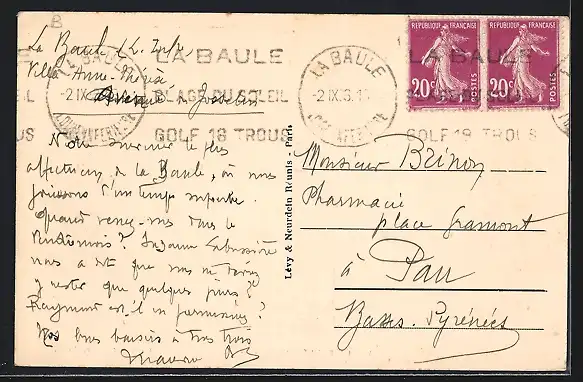 B
La Baule (L. Inf.)
Villa Anne-Thérèse
Avenue de Josselin
LA BAULE
PLAGE DU SOLEIL
GOLF 18 TROUS
LA BAULE
-2 IX 3
LOIRE INFERIEURE
REPUBLIQUE FRANÇAISE
20c
POSTES
REPUBLIQUE FRANÇAISE
20c
POSTES
LA BAULE
PLAGE DU SOLEIL
GOLF 18 TROUS
Notre souvenir le plus
affectueux de la Baule, où nous
jouissons d'un temps superbe.
Quand venez-vous dans le
? Suzanne
nous a dit que vous ne
y rester que quelques jours ?
Raymond est-il en permission ?
Nos bons baisers à tous trois
Lévy & Neurdein Réunis - Paris
Monsieur Brinon
Pharmacie
place Gramont
à Pau
Basses-Pyrénées